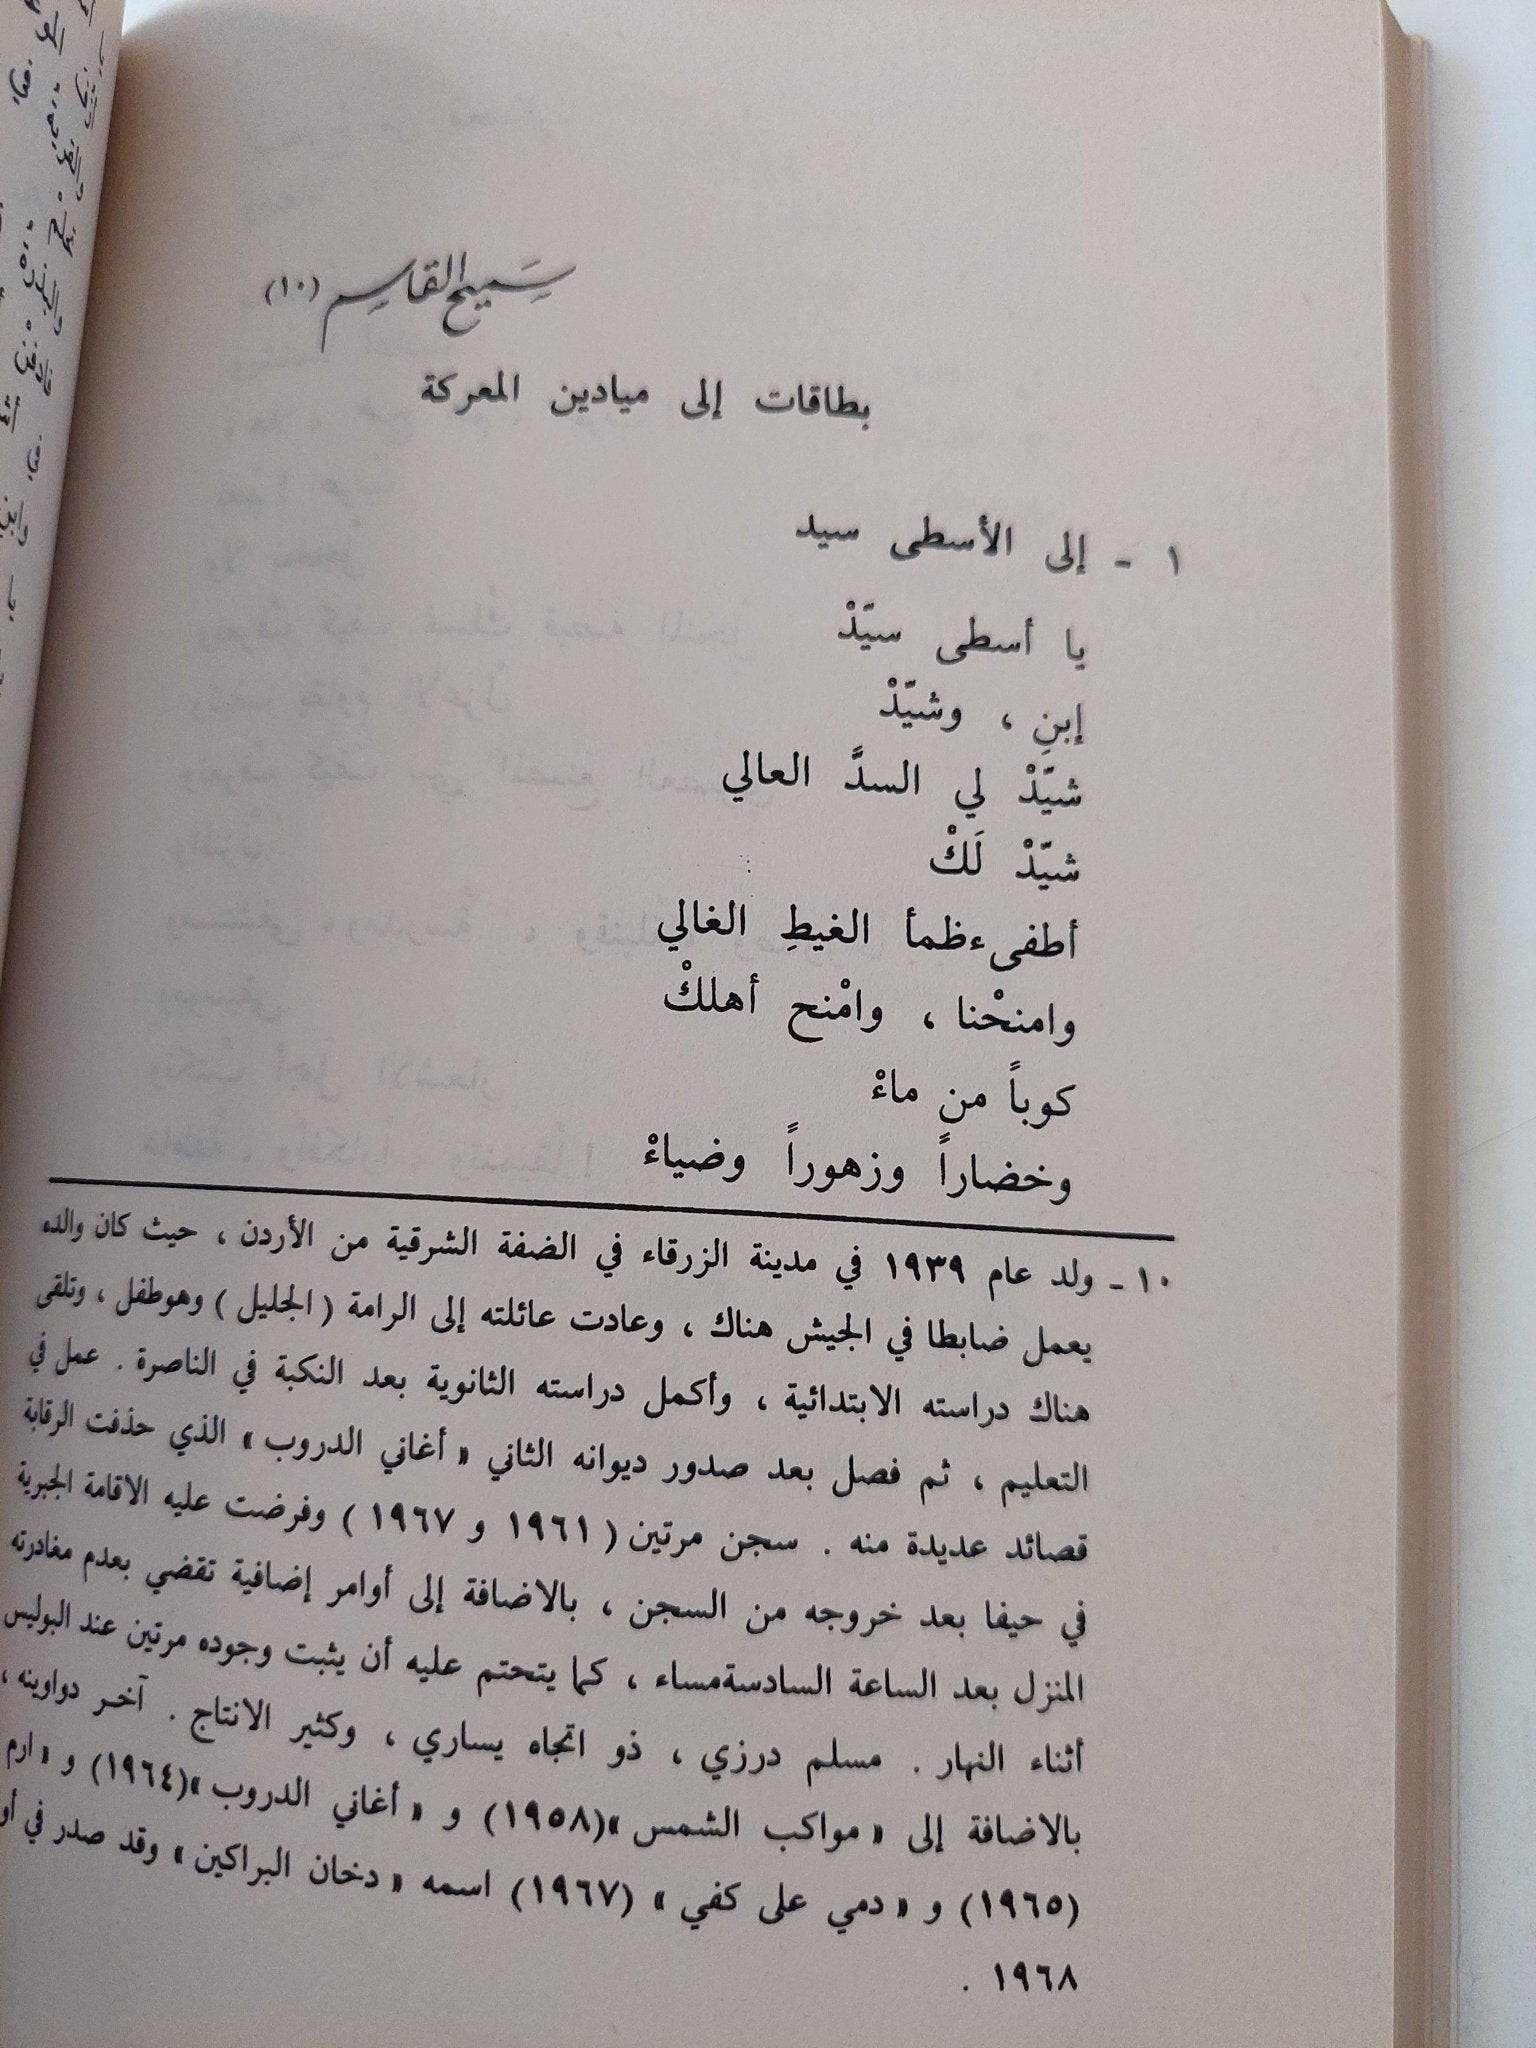 سَميح القاسِم (١٠)
بطاقات إلى ميادين المعركة
١ - إلى الأسطى سيد
يا أسطى سيّدْ
إبنِ ، وشيّدْ
شيّدْ لي السدَّ العالي
شيّدْ لَكْ
أطفىء ظمأ الغيطِ الغالي
وامنحْنا ، وامْنح أهلكْ
كوباً من ماءْ
وخضاراً وزهوراً وضياءْ
١٠ - ولد عام ١٩٣٩ في مدينة الزرقاء في الضفة الشرقية من الأردن ، حيث كان والده
يعمل ضابطا في الجيش هناك ، وعادت عائلته إلى الرامة ( الجليل ) وهو طفل ، وتلقى
هناك دراسته الابتدائية ، وأكمل دراسته الثانوية بعد النكبة في الناصرة . عمل في
التعليم ، ثم فصل بعد صدور ديوانه الثاني « أغاني الدروب » الذي حذفت الرقابة
قصائد عديدة منه . سجن مرتين ( ١٩٦١ و ١٩٦٧ ) وفرضت عليه الاقامة الجبرية
في حيفا بعد خروجه من السجن ، بالاضافة إلى أوامر إضافية تقضي بعدم مغادرته
المنزل بعد الساعة السادسة مساء ، كما يتحتم عليه أن يثبت وجوده مرتين عند البوليس
أثناء النهار . مسلم درزي ، ذو اتجاه يساري ، وكثير الانتاج . آخر دواوينه ،
بالاضافة إلى « مواكب الشمس »(١٩٥٨) و « أغاني الدروب »(١٩٦٤) و « ارم
(١٩٦٥) و « دمي على كفي » (١٩٦٧) اسمه « دخان البراكين » وقد صدر في
١٩٦٨ .